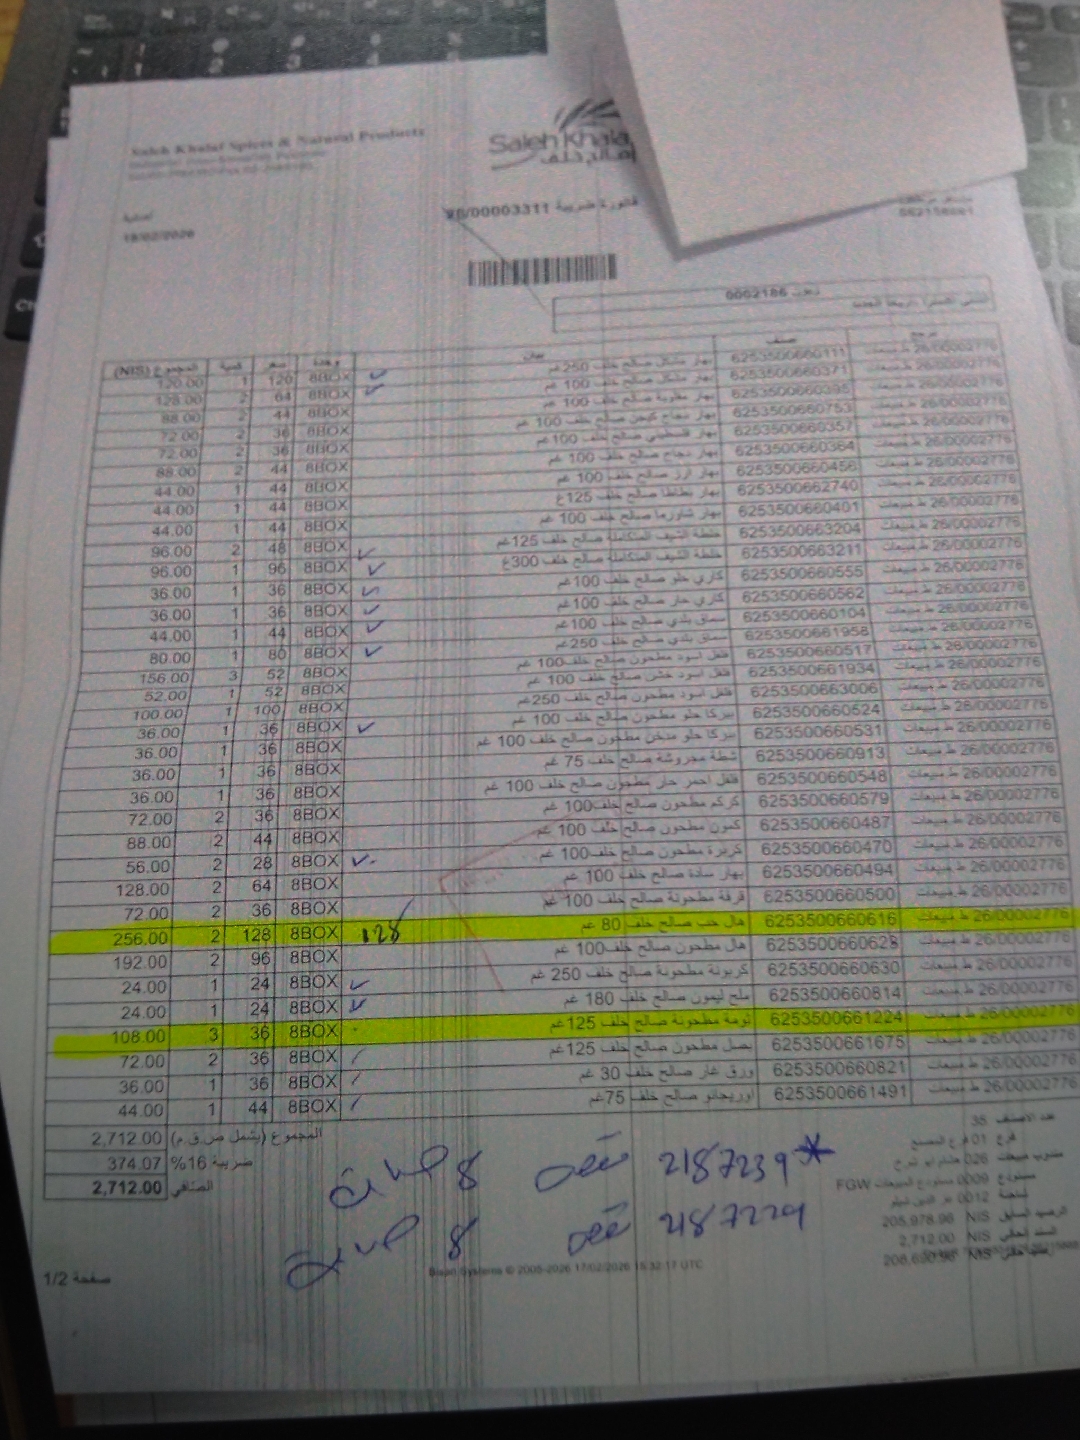 Saleh Khalaf Spices & Natural Products
Saleh Khala
صالح خلف
أصلية
18/02/2026
فاتورة ضريبية 26/00003311
562156061
0002186
المجموع (NIS) كمية سعر وحدة بيان صنف مرجع
120.00 1 120 8BOX بهار مشكل صالح خلف 250 غم 6253500660111 ط مبيعات 26/00002776
128.00 2 64 8BOX بهار مشكل صالح خلف 100 غم 6253500660371 ط مبيعات 26/00002776
88.00 2 44 8BOX بهار مقلوبة صالح خلف 100 غم 6253500660395 ط مبيعات 26/00002776
72.00 2 36 8BOX بهار دجاج كبجن صالح خلف 100 غم 6253500660753 ط مبيعات 26/00002776
72.00 2 36 8BOX بهار فلسطيني صالح خلف 100 غم 6253500660357 ط مبيعات 26/00002776
88.00 2 44 8BOX بهار دجاج صالح خلف 100 غم 6253500660364 ط مبيعات 26/00002776
44.00 1 44 8BOX بهار ارز صالح خلف 100 غم 6253500660456 ط مبيعات 26/00002776
44.00 1 44 8BOX بهار بطاطا صالح خلف 125غ 6253500662740 ط مبيعات 26/00002776
44.00 1 44 8BOX بهار شاورما صالح خلف 100 غم 6253500660401 ط مبيعات 26/00002776
96.00 2 48 8BOX خلطة الشيف المتكاملة صالح خلف 125غم 6253500663204 ط مبيعات 26/00002776
96.00 1 96 8BOX خلطة الشيف المتكاملة صالح خلف 300غ 6253500663211 ط مبيعات 26/00002776
36.00 1 36 8BOX كاري حلو صالح خلف 100غم 6253500660555 ط مبيعات 26/00002776
36.00 1 36 8BOX كاري حار صالح خلف 100غم 6253500660562 ط مبيعات 26/00002776
44.00 1 44 8BOX سماق بلدي صالح خلف 100غم 6253500660104 ط مبيعات 26/00002776
80.00 1 80 8BOX سماق بلدي صالح خلف 250غم 6253500661958 ط مبيعات 26/00002776
156.00 3 52 8BOX فلفل اسود مطحون صالح خلف 100 غم 6253500660517 ط مبيعات 26/00002776
52.00 1 52 8BOX فلفل اسود خشن صالح خلف 100 غم 6253500661934 ط مبيعات 26/00002776
100.00 1 100 8BOX فلفل اسود مطحون صالح خلف 250غم 6253500663006 ط مبيعات 26/00002776
36.00 1 36 8BOX ببركا حلو مطحون صالح خلف 100 غم 6253500660524 ط مبيعات 26/00002776
36.00 1 36 8BOX ببركا حلو مدخن مطحون صالح خلف 100 غم 6253500660531 ط مبيعات 26/00002776
36.00 1 36 8BOX شطة مجروشة صالح خلف 75 غم 6253500660913 ط مبيعات 26/00002776
36.00 1 36 8BOX فلفل احمر حار مطحون صالح خلف 100 غم 6253500660548 ط مبيعات 26/00002776
72.00 2 36 8BOX كركم مطحون صالح خلف 100غم 6253500660579 ط مبيعات 26/00002776
88.00 2 44 8BOX كمون مطحون صالح خلف 100 غم 6253500660487 ط مبيعات 26/00002776
56.00 2 28 8BOX كزبرة مطحون صالح خلف 100غم 6253500660470 ط مبيعات 26/00002776
128.00 2 64 8BOX بهار سادة صالح خلف 100 غم 6253500660494 ط مبيعات 26/00002776
72.00 2 36 8BOX قرفة مطحونة صالح خلف 100 غم 6253500660500 ط مبيعات 26/00002776
256.00 2 128 8BOX 128 هال حب صالح خلف 80 غم 6253500660616 ط مبيعات 26/00002776
192.00 2 96 8BOX هال مطحون صالح خلف 100غم 6253500660623 ط مبيعات 26/00002776
24.00 1 24 8BOX كربونة مطحونة صالح خلف 250 غم 6253500660630 ط مبيعات 26/00002776
24.00 1 24 8BOX ملح ليمون صالح خلف 180 غم 6253500660814 ط مبيعات 26/00002776
108.00 3 36 8BOX ثومة مطحونة صالح خلف 125غم 6253500661224 ط مبيعات 26/00002776
72.00 2 36 8BOX بصل مطحون صالح خلف 125غم 6253500661675 ط مبيعات 26/00002776
36.00 1 36 8BOX ورق غار صالح خلف 30 غم 6253500660821 ط مبيعات 26/00002776
44.00 1 44 8BOX اوريجانو صالح خلف 75غم 6253500661491 ط مبيعات 26/00002776
المجموع (يشمل ض.ق.م) 2,712.00
ضريبة 16% 374.07
الصافي 2,712.00
عدد الأصناف 35
فرع 01 فرع المصنع
مندوب مبيعات 026
مستودع 0009 مستودع المبيعات FGW
شاحنة 0012
الرصيد السابق NIS 205,978.96
السند الحالي NIS 2,712.00
NIS 208,690.96
8 2187239*
8 2187229
Bisan Systems © 2005-2026 17/02/2026 15:32:17 UTC
صفحة 1/2